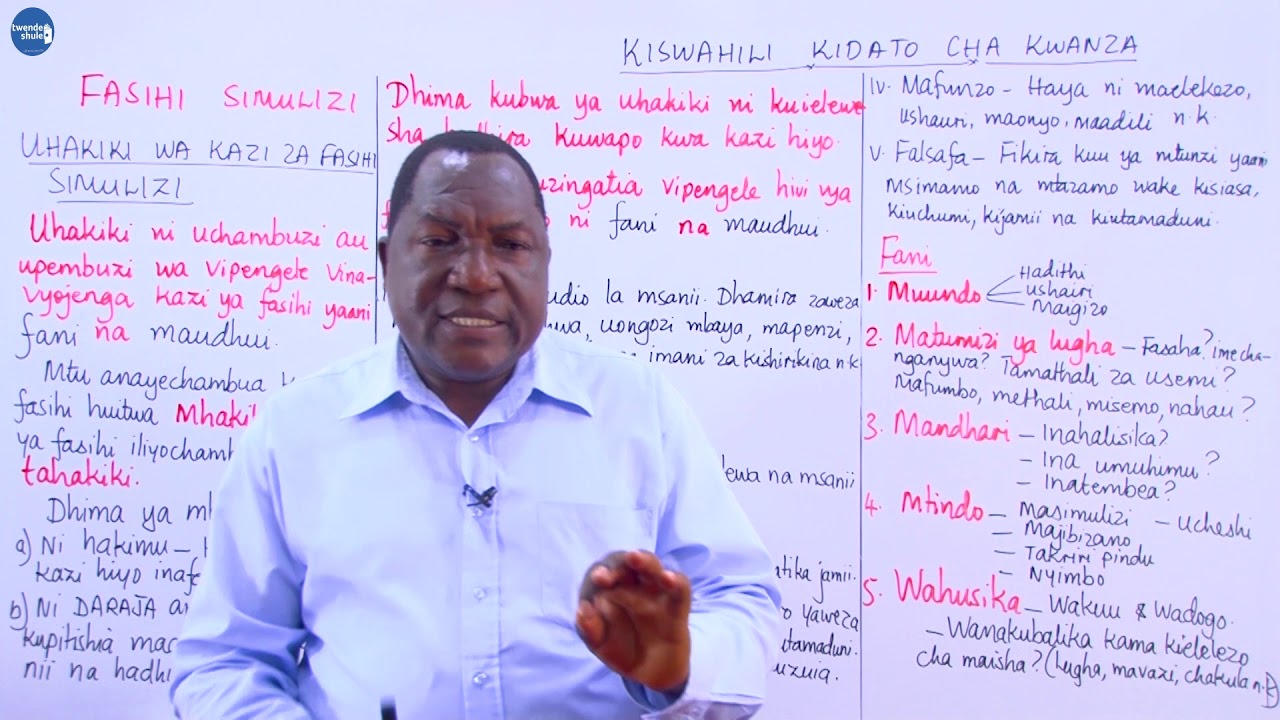 twende
shule
KISWAHILI KIDATO CHA KWANZA
FASIHI SIMULIZI
UHAKIKI WA KAZI ZA FASIHI
SIMULIZI
Uhakiki ni uchambuzi au
upembuzi wa vipengele vina-
vyojenga kazi ya fasihi yaani
fani na maudhui.
Mtu anayechambua
fasihi huitwa
ya fasihi
tahakiki.
Dhima ya
a) Ni hakimu –
kazi hiyo
b) Ni DARAJA
kupitishia
nii na
Dhima kubwa ya uhakiki ni kuielewe
sha kuwapo kwa kazi hiyo.
vipengele hivi vya
ni fani na maudhui.
la msanii. Dhamira zaweza
uongozi mbaya, mapenzi,
imani za kishirikina n.k
na msanii
jamii.
yaweza
iv. Mafunzo - Haya ni maelekezo,
ushauri, maonyo, maadili n.k.
v. Falsafa - Fikira kuu ya mtunzi yaani
msimamo na mtazamo wake kisiasa,
kiuchumi, kijamii na kiutamaduni.
Fani
1. Muundo
Hadithi
ushairi
Maigizo
2. Matumizi ya lugha – Fasaha? imecha-
nganywa? Tamathali za usemi?
Mafumbo, methali, misemo, nahau?
3. Mandhari – Inahalisika?
– Ina umuhimu?
– Inatembea?
4. Mtindo – Masimulizi – Ucheshi
– Majibizano
– Takriri pindu
– Nyimbo
5. Wahusika – Wakuu & Wadogo.
– Wanakubalika kama kielelezo
cha maisha? (lugha, mavazi, chakula n.k)